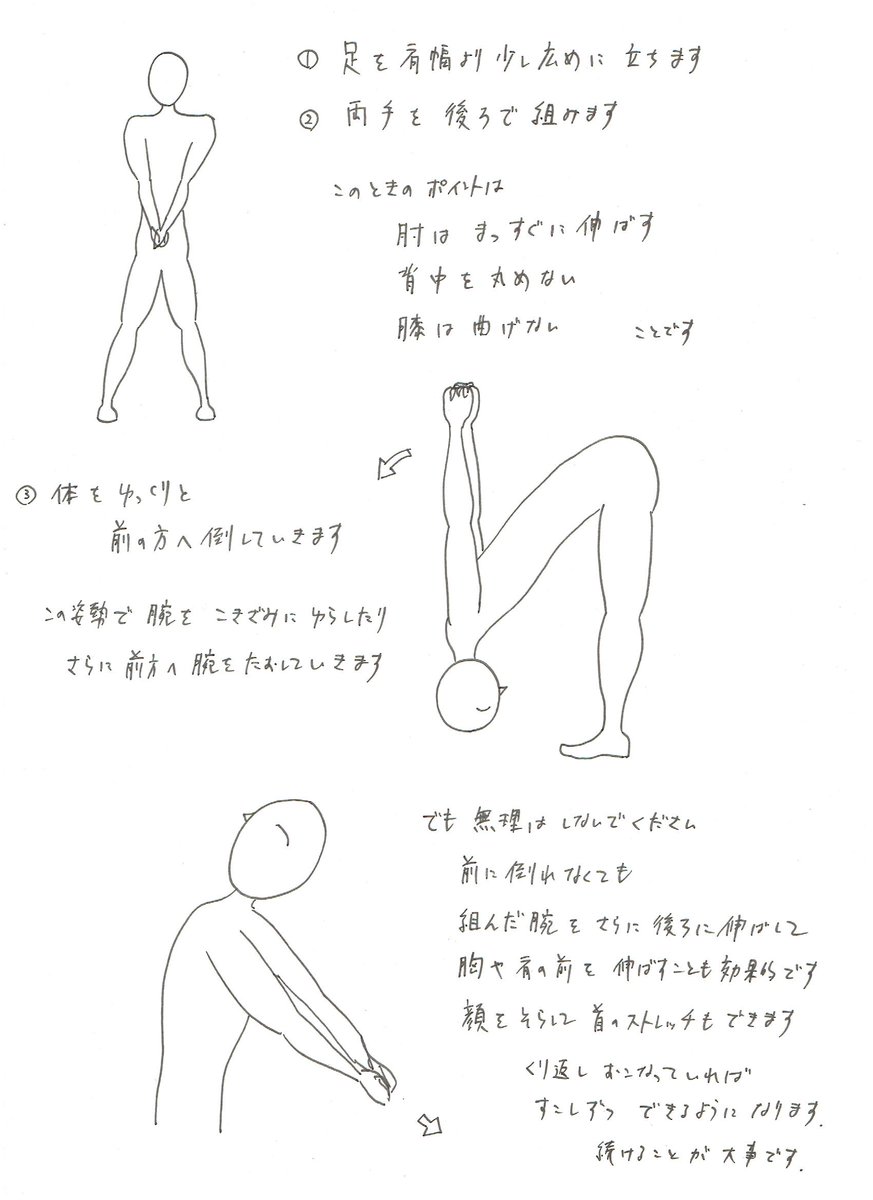 ① 足を肩幅より少し広めに立ちます
② 両手を後ろで組みます
このときのポイントは
肘はまっすぐに伸ばす
背中を丸めない
膝は曲げない ことです
③ 体をゆっくりと
前の方へ倒していきます
この姿勢で腕をこきざみにゆらしたり
さらに前方へ腕をたおしていきます
でも無理はしないでください
前に倒れなくても
組んだ腕をさらに後ろに伸ばして
胸や肩の前を伸ばすことも効果的です
顔をそらして首のストレッチもできます
くり返しおこなっていれば
すこしずつできるようになります.
続けることが大事です.